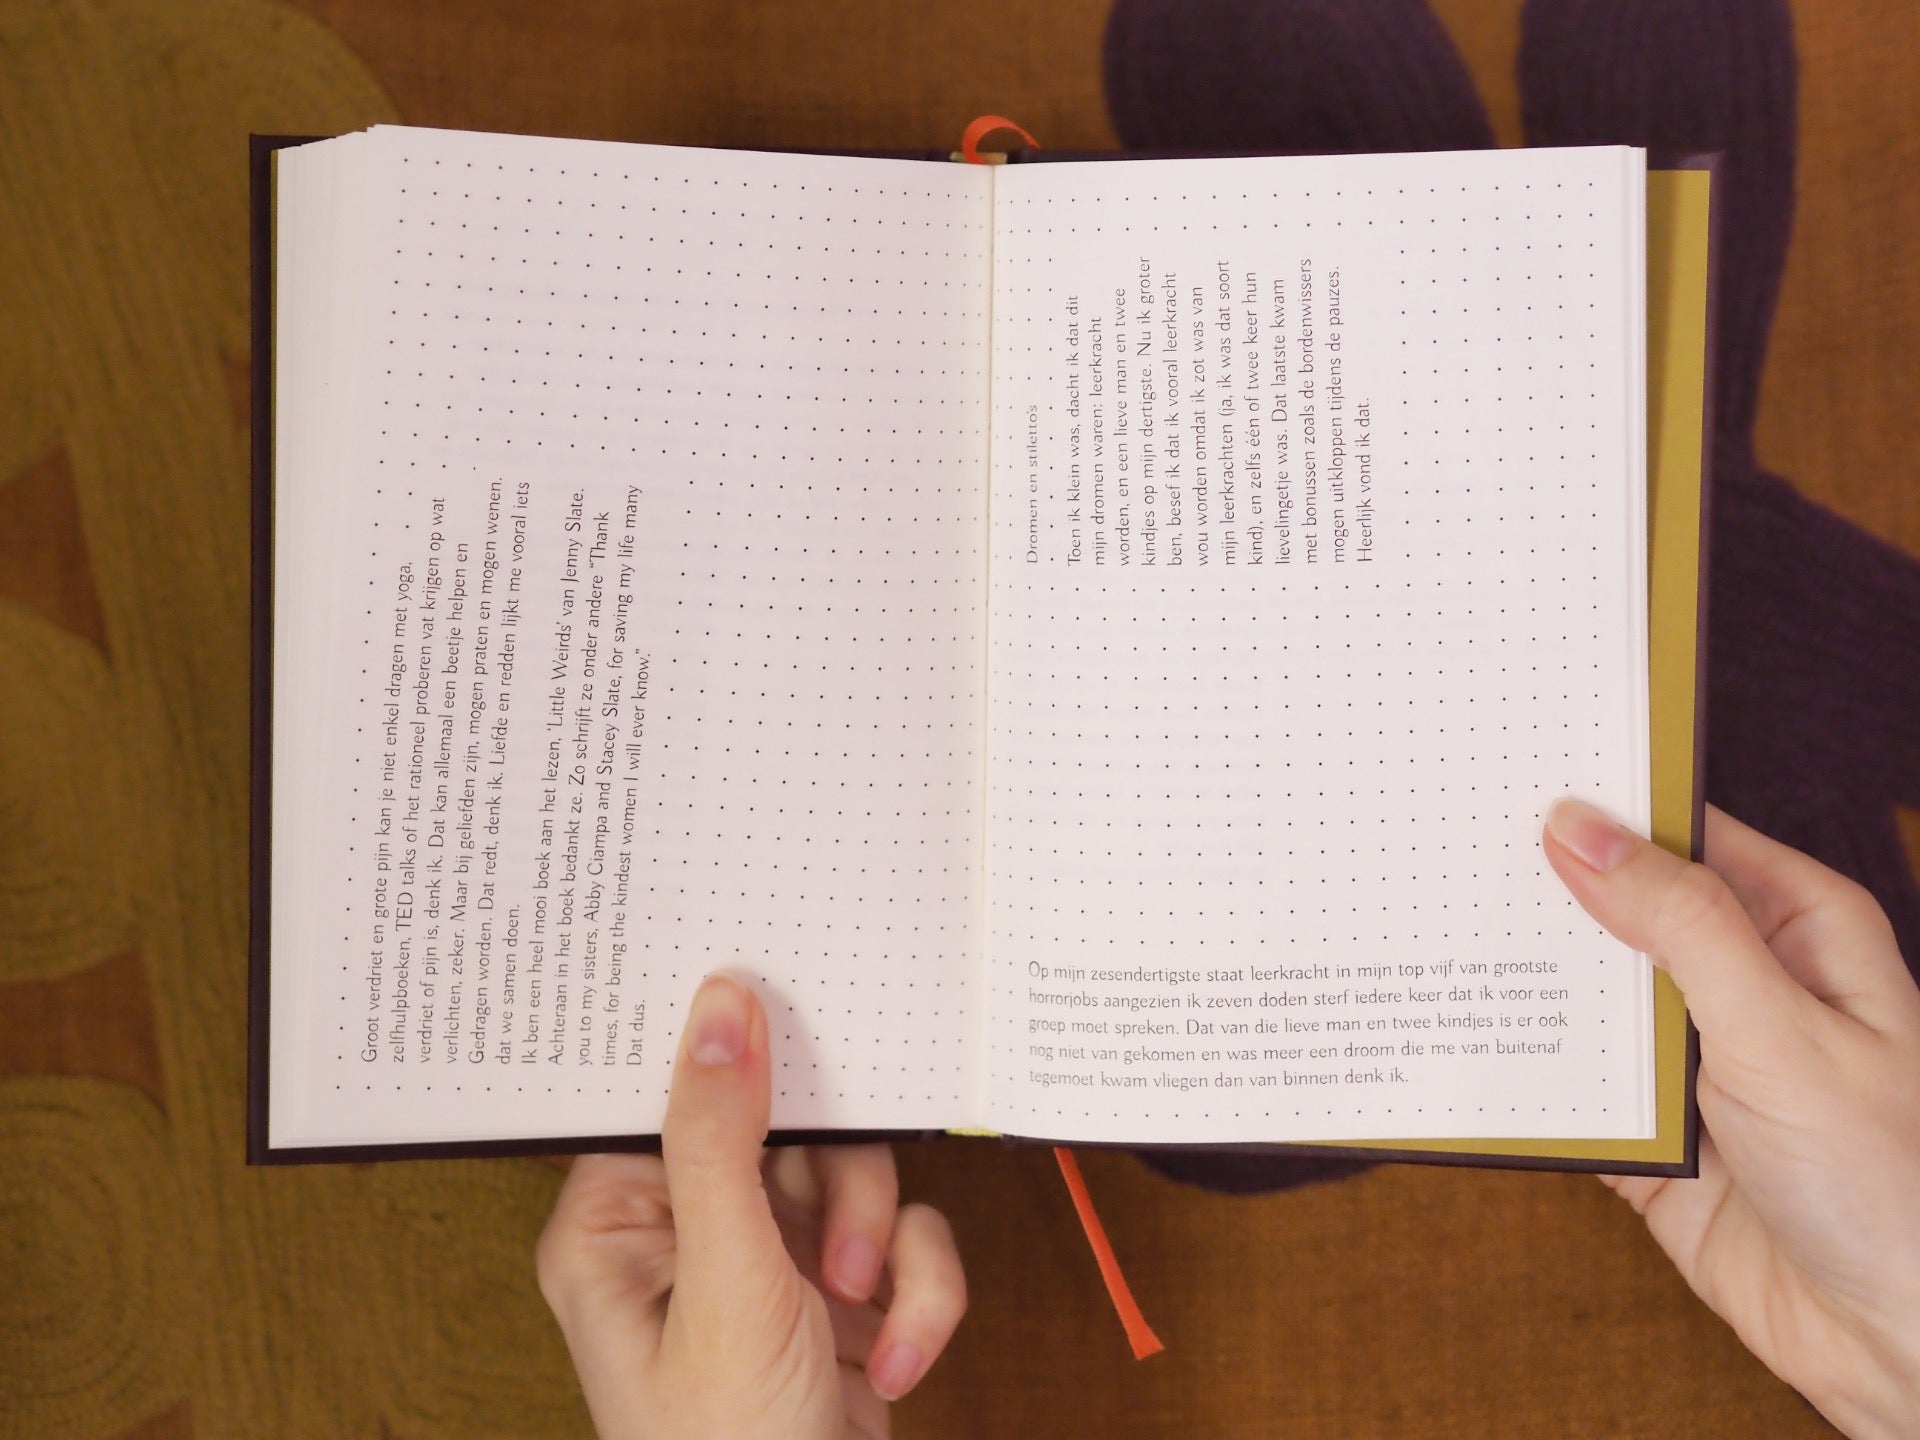 Groot verdriet en grote pijn kan je niet enkel dragen met yoga,
zelfhulpboeken, TED talks of het rationeel proberen vat krijgen op wat
verdriet of pijn is, denk ik. Dat kan allemaal een beetje helpen en
verlichten, zeker. Maar bij geliefden zijn, mogen praten en mogen wenen.
Gedragen worden. Dat redt, denk ik. Liefde en redden lijkt me vooral iets
dat we samen doen.
Ik ben een heel mooi boek aan het lezen, 'Little Weirds' van Jenny Slate.
Achteraan in het boek bedankt ze. Zo schrijft ze onder andere “Thank
you to my sisters, Abby Ciampa and Stacey Slate, for saving my life many
times, for being the kindest women I will ever know.”
Dat dus.
Dromen en stiletto's
Toen ik klein was, dacht ik dat dit
mijn dromen waren: leerkracht
worden, en een lieve man en twee
kindjes op mijn dertigste. Nu ik groter
ben, besef ik dat ik vooral leerkracht
wou worden omdat ik zot was van
mijn leerkrachten (ja, ik was dat soort
kind), en zelfs één of twee keer hun
lievelingetje was. Dat laatste kwam
met bonussen zoals de bordenwissers
mogen uitkloppen tijdens de pauzes.
Heerlijk vond ik dat.
Op mijn zesendertigste staat leerkracht in mijn top vijf van grootste
horrorjobs aangezien ik zeven doden sterf iedere keer dat ik voor een
groep moet spreken. Dat van die lieve man en twee kindjes is er ook
nog niet van gekomen en was meer een droom die me van buitenaf
tegemoet kwam vliegen dan van binnen denk ik.